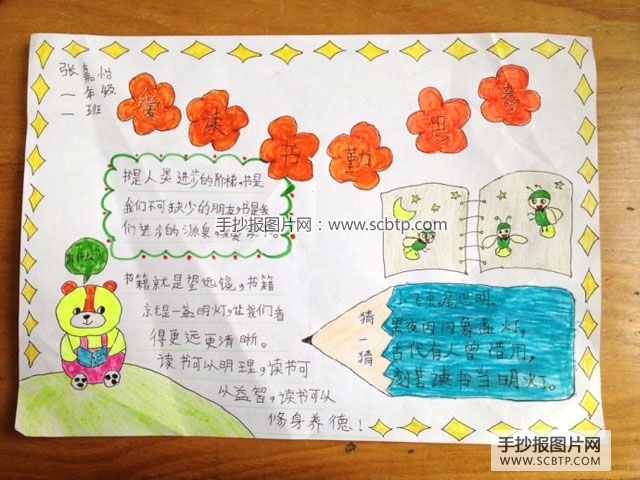 张嘉怡
一年级
一班
常读书勤思考
书是人类进步的阶梯,书是
我们不可缺少的朋友,书是我
们进步的源泉。
手抄报图片网:www.scbtp.com
为什么?
书籍就是望远镜,书籍
就是一盏明灯,让我们看
得更远更清晰。
读书可以明理,读书可
以益智,读书可以
修身养德!
猜一猜
小飞虫,尾巴明,
黑夜闪闪象盏灯,
古代有人曾借用,
刻苦读书当明灯。
手抄报图片网
WWW.SCBTP.COM